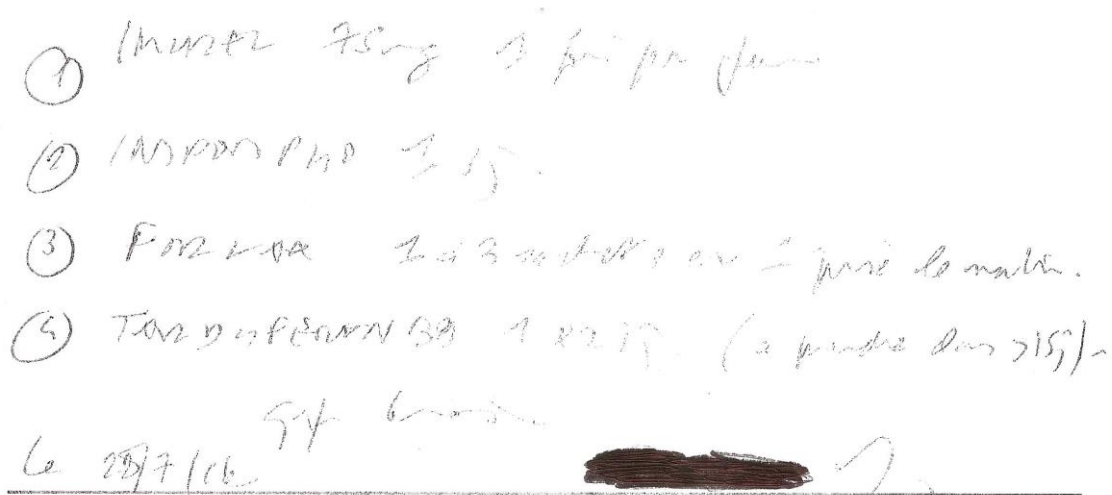 ① IMUREL 75mg 1 fois par jour
② 1 / j.
③ FORLAX 1 à 3 sachets en 1 prise le matin.
④ TARDYFERON B9 1 x 2 / j (à prendre dans > 15j)
Le 28/7/16